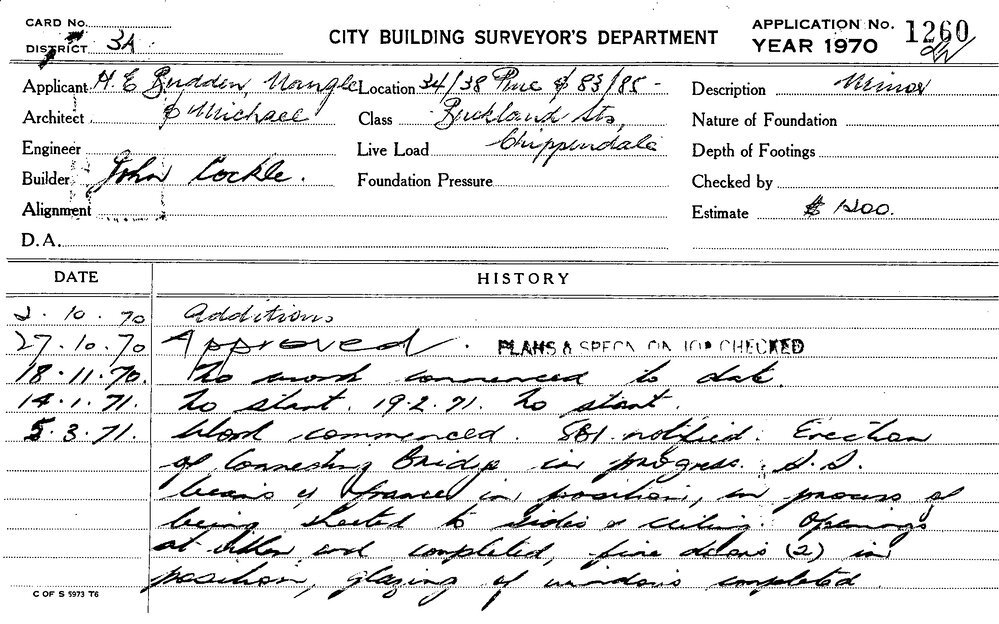 CARD No.
DISTRICT 3A
CITY BUILDING SURVEYOR'S DEPARTMENT
APPLICATION No. 1260
YEAR 1970
Applicant H. E Budden, Nangle
Architect & Michael
Engineer
Builder John Cockle.
Alignment
D.A.
Location 34/38 Pine & 83/85 -
Class Buckland Sts,
Live Load Chippendale
Foundation Pressure
Description Minor
Nature of Foundation
Depth of Footings
Checked by
Estimate $ 1200.
DATE HISTORY
2. 10. 70 Additions
27. 10. 70 Approved. PLANS & SPECN. ON JOB CHECKED
18. 11. 70. No work commenced to date.
14. 1. 71. No start. 19. 2. 71. No start.
5. 3. 71. Work commenced. SBI notified. Erection
of Connecting Bridge in progress.
beams & frames in position, in process of
being sheeted to sides & ceiling. Openings
at either end completed, fire doors (2) in
position, glazing of windows completed.
C OF S 5973 T6